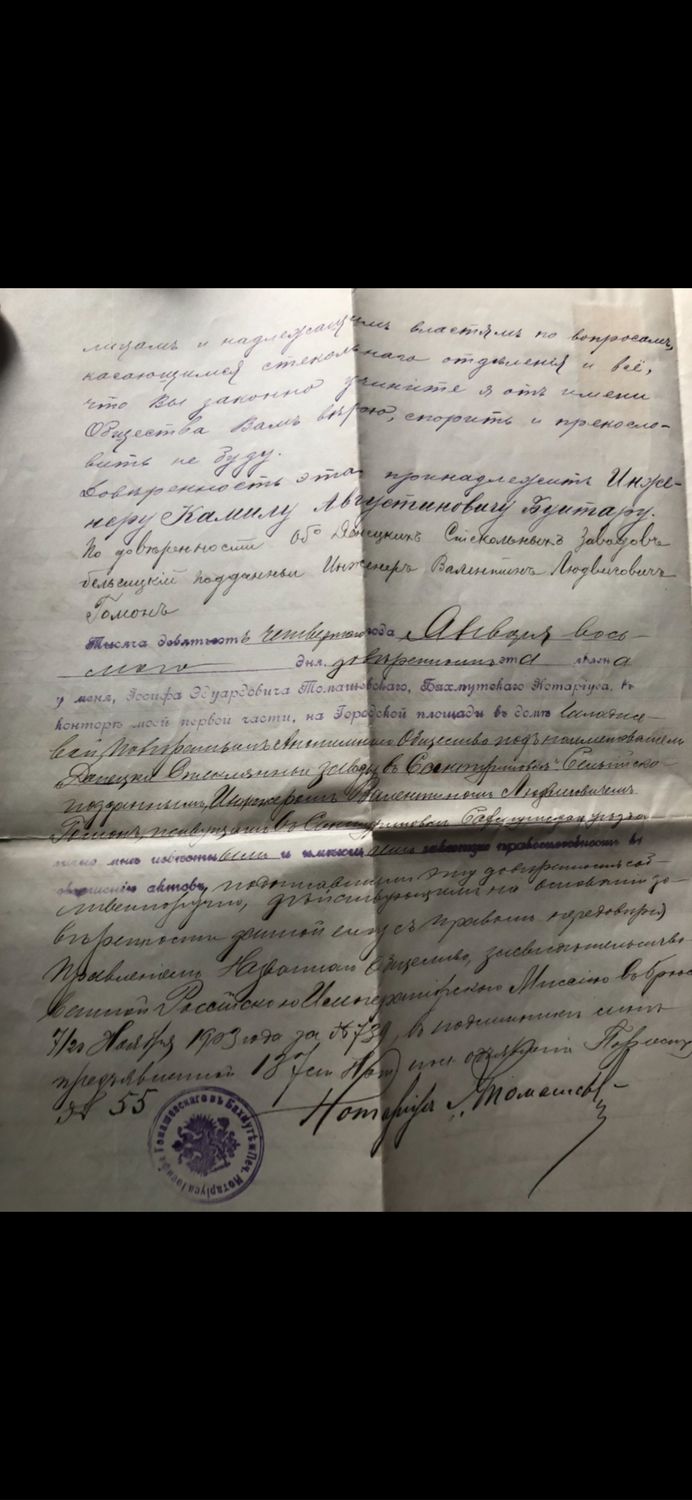 лицамъ и надлежащимъ властямъ по вопросамъ,
касающимся стекольнаго отдѣленія и всё,
что Вы законно учините я отъ имени
Общества Вамъ вѣрю, спорить и прекосло-
вить не буду.
Довѣренность эта принадлежитъ Инже-
неру Камилу Августиновичу Буитару.
По довѣренности Об⁰ Донецкихъ Стекольныхъ Заводовъ
бельгицкій подданный Инженеръ Валентинъ Людвиговичъ
Гомонъ
Тысяча девятьсотъ четвертаго года Января вось-
маго дня, довѣренность эта явлена
у меня, Іосифа Эдуардовича Томашевскаго, Бахмутскаго Нотаріуса, въ
конторѣ моей первой части, на Городской площади въ домѣ
Повѣреннымъ Анонимнаго Общества подъ наименованіемъ
"Донецкіе Стеклянные заводы въ Сантуриновкѣ"
подданнымъ, Инженеромъ Валентиномъ Людвиговичемъ
Гомонъ, живущимъ въ Сантуриновкѣ Бахмутскаго уѣзда
лично мнѣ извѣстнымъ и имѣющимъ законную правоспособность къ
совершенію актовъ, подписавшимъ эту довѣренность соб-
ственноручно, дѣйствующимъ на основаніи до-
вѣренности данной ему съ правомъ передовѣрія
Правленіемъ Названнаго Общества, засвидѣтельство-
ванной Россійскою Императорскою Миссіею въ Брюс
7/20 Ноября 1903 года за № 739, въ подлинникѣ мнѣ
предъявленной 1904
№ 55
Нотаріусъ І. Томашевс
Нотаріуса Іосифа Томашевскаго въ Бахмутѣ Печ.